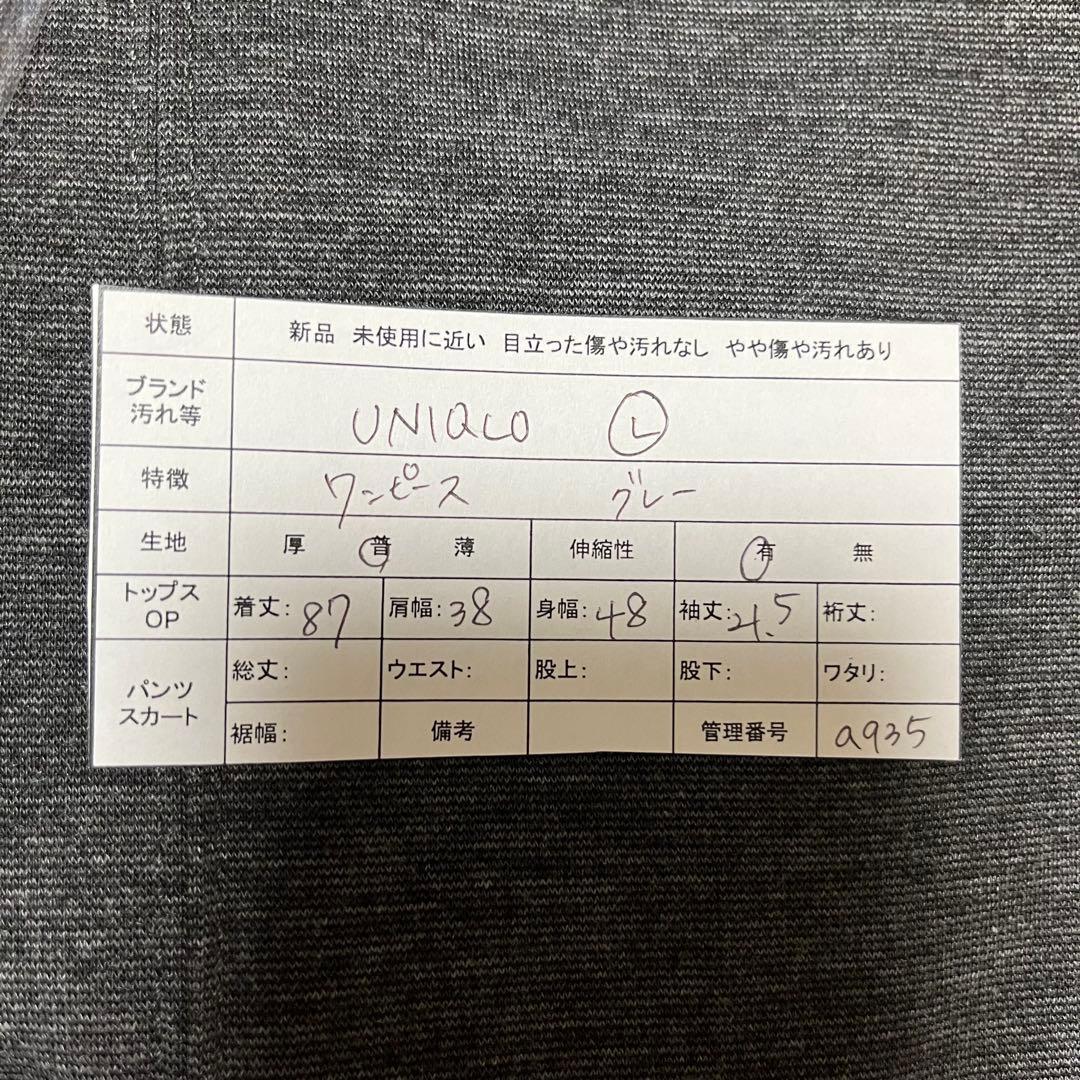 状態 新品 未使用に近い 目立った傷や汚れなし やや傷や汚れあり
ブランド
汚れ等 UNIQLO L
特徴 ワンピース グレー
生地 厚 普 薄 伸縮性 有 無
トップス
OP 着丈: 87 肩幅: 38 身幅: 48 袖丈: 裄丈:
パンツ
スカート 総丈: ウエスト: 股上: 股下: ワタリ:
裾幅: 備考 管理番号 a935